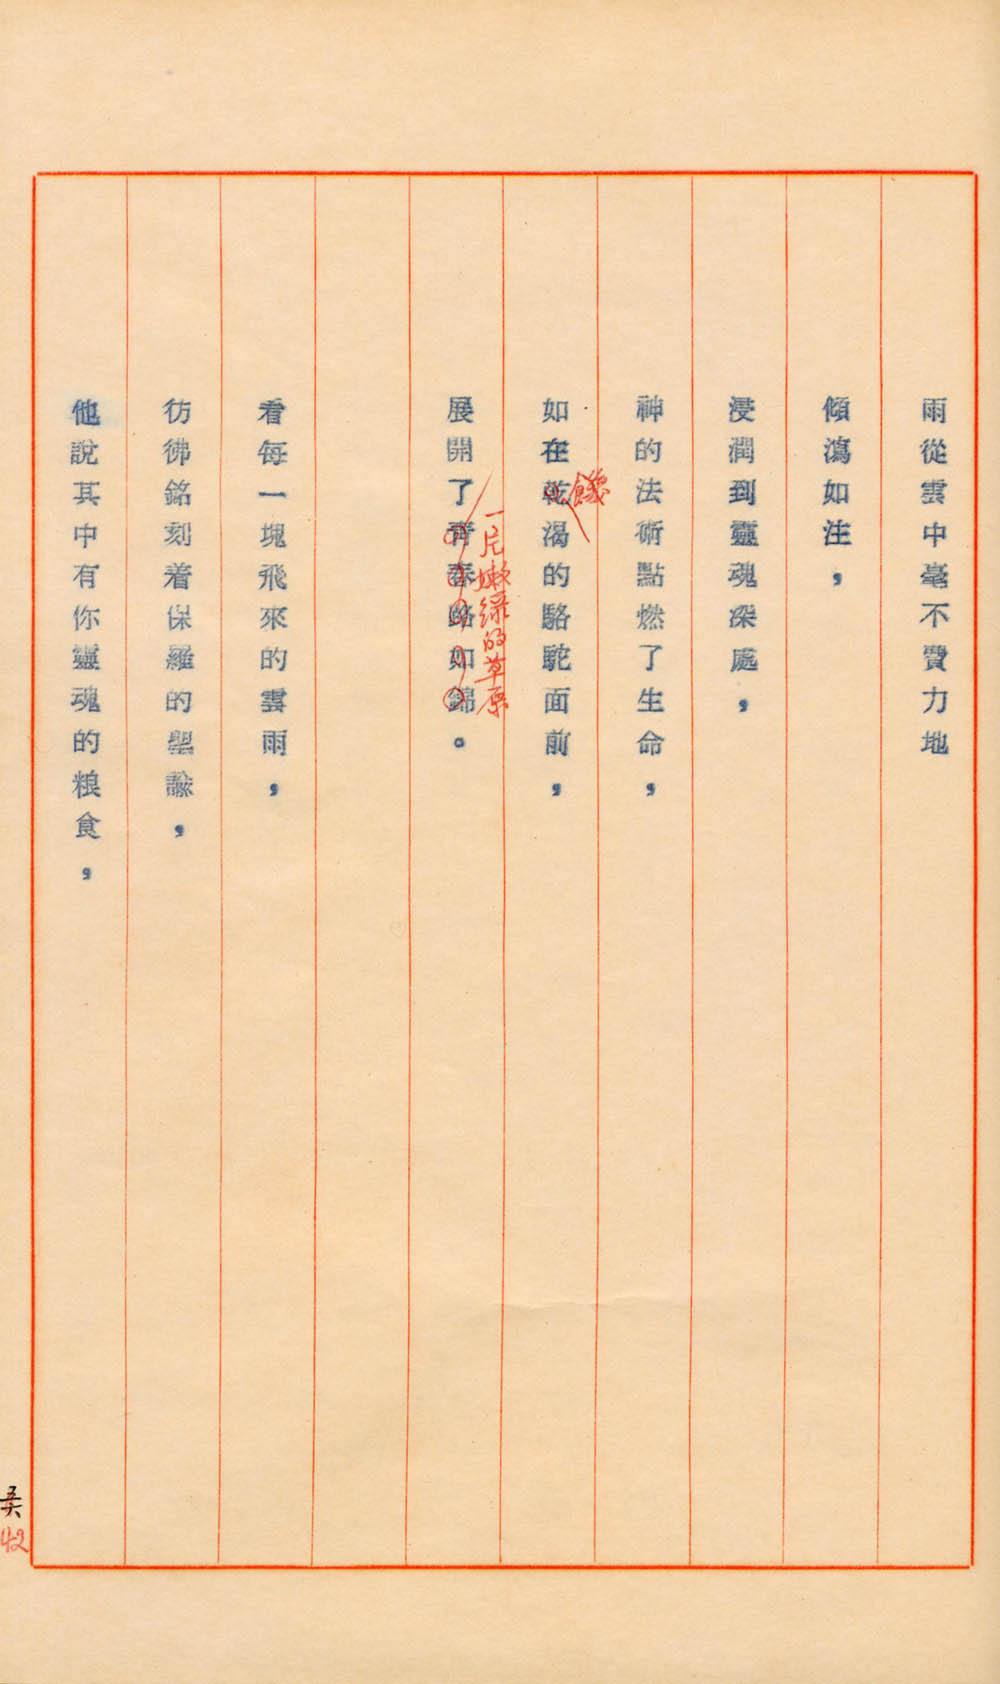 雨從雲中毫不費力地
傾瀉如注，
浸潤到靈魂深處，
神的法術點燃了生命，
如在乾渴的駱駝面前，
饑
一片嫩綠的草原
展開了青春路如錦。
看每一塊飛來的雲雨，
彷彿銘刻着保羅的聖諭，
他說其中有你靈魂的粮食，
42